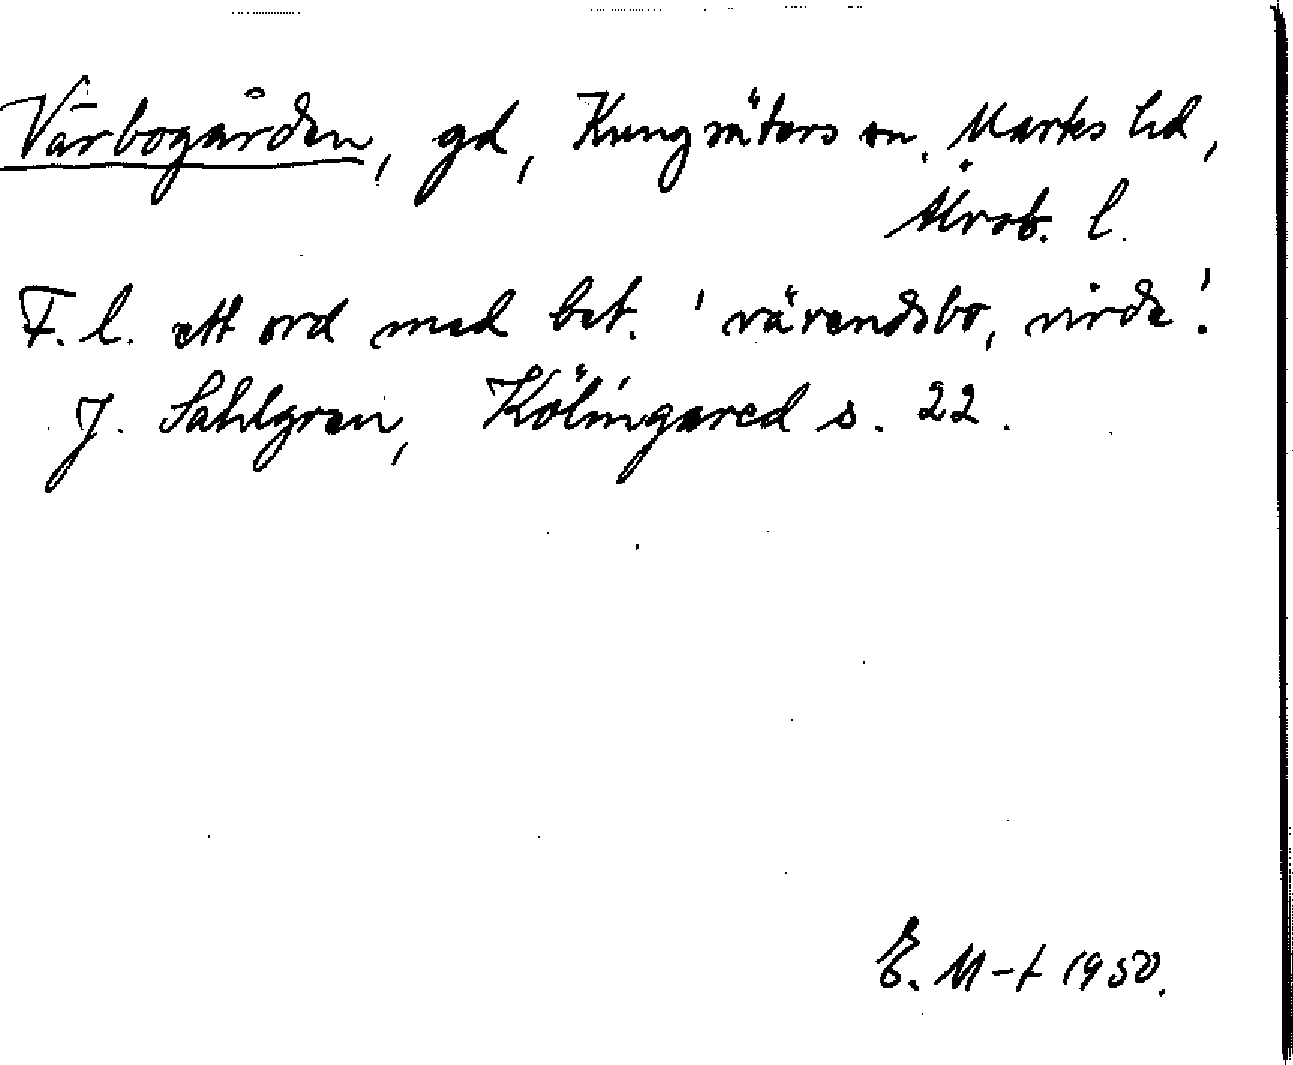 Värbogården, gd, Kungsäters sn, Marks hd,
Älvsb. l.
F. l. ett ord med bet. 'värendsbo, virde'.
J. Sahlgren, Kölingared s. 22.
E. M-t 1950.